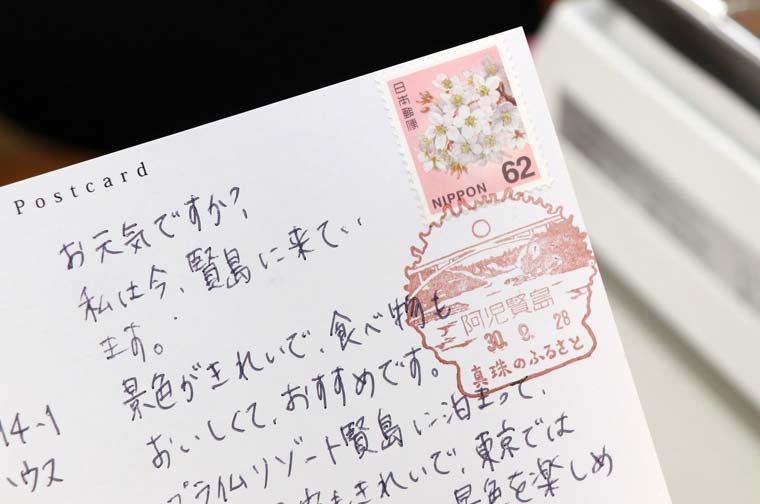 Postcard
日本郵便
62
NIPPON
阿児賢島
30. 9. 28
真珠のふるさと
お元気ですか?
私は今、賢島に来てい
ます。
景色がきれいで、食べ物も
おいしくて、おすすめです。
プライムリゾート賢島に泊まって、
もきれいで、東京では
景色を楽しめ
14-1
ハウス